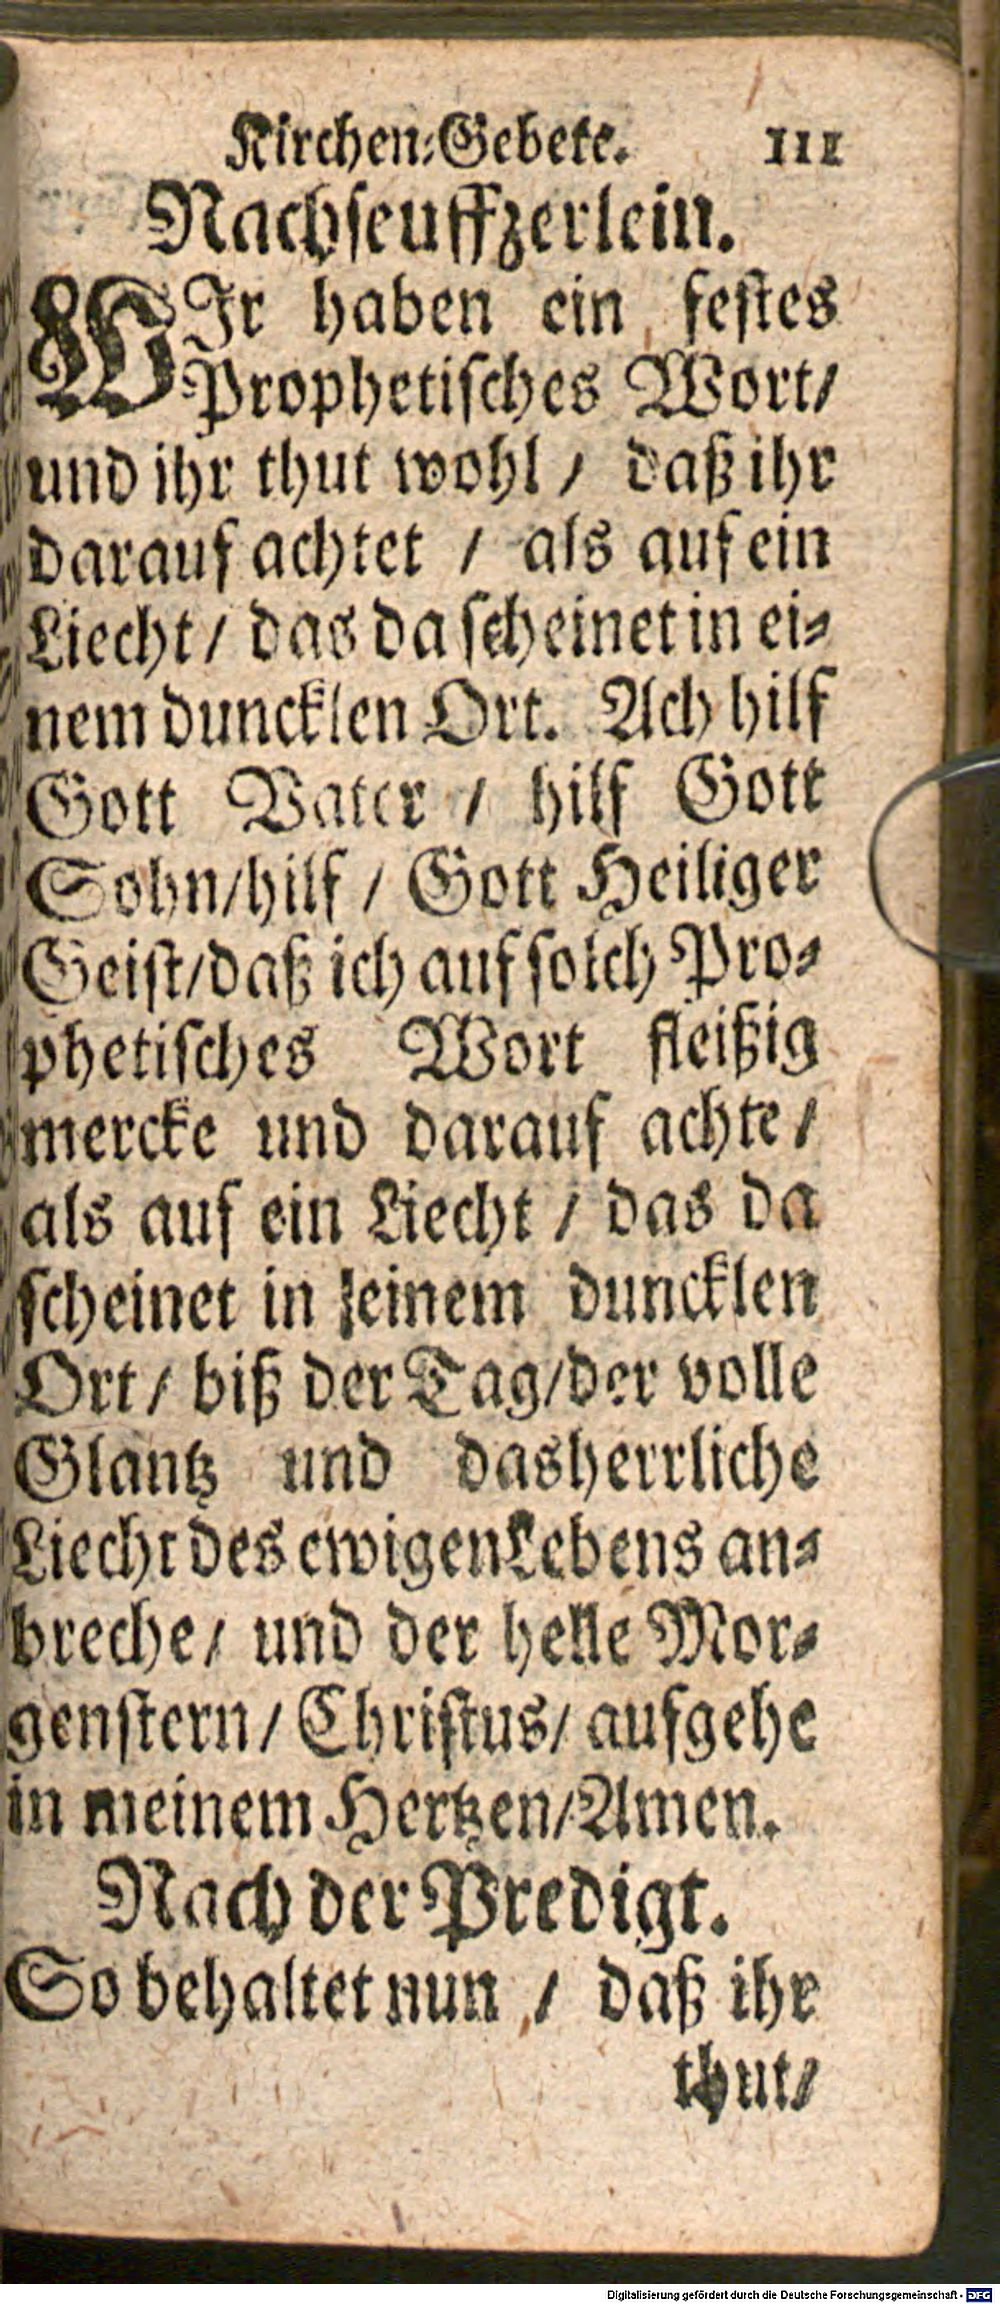 Kirchen-Gebete. 111
Nachseuffzerlein.
WIr haben ein festes
Prophetisches Wort/
und ihr thut wohl / daß ihr
darauf achtet / als auf ein
Liecht / das da scheinet in ei-
nem duncklen Ort. Ach hilf
Gott Vater / hilf Gott
Sohn/hilf / Gott Heiliger
Geist/daß ich auf solch Pro-
phetisches Wort fleißig
mercke und darauf achte /
als auf ein Liecht / das da
scheinet in seinem duncklen
Ort / biß der Tag/der volle
Glantz und dasherrliche
Liecht des ewigen Lebens an-
breche / und der helle Mor-
genstern / Christus / aufgehe
in meinem Hertzen/Amen.
Nach der Predigt.
So behaltet nun / daß ihr
thut/
Digitalisierung gefördert durch die Deutsche Forschungsgemeinschaft - DFG